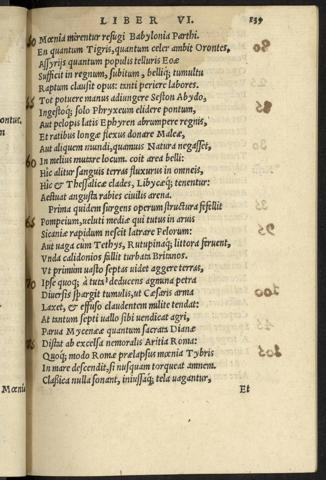 LIBER VI. 139
50 Mœnia mirentur refugi Babylonia Parthi.
En quantum Tigris, quantum celer ambit Orontes,
Assyrijs quantum populis telluris Eoæ
Sufficit in regnum, subitum, belliq; tumultu
Raptum clausit opus: tanti periere labores.
55 Tot potuere manus adiungere Seston Abydo,
Ingestoq; solo Phryxeum elidere pontum,
Aut pelopis latis Ephyren abrumpere regnis,
Et ratibus longæ flexus donare Maleæ,
Aut aliquem mundi, quamuis Natura negasset,
60 In melius mutare locum. coit area belli:
Hic alitur sanguis terras fluxurus in omneis,
Hic & Thessalicæ clades, Libycæq; tenentur:
Aestuat angusta rabies ciuilis arena.
Prima quidem surgens operum structura fefellit
65 Pompeium, ueluti mediæ qui tutus in aruis
Sicaniæ rapidum nescit latrare Pelorum:
Aut uaga cum Tethys, Rutupinaq; littora feruent,
Vnda calidonios fallit turbata Britannos.
Vt primum uasto septas uidet aggere terras,
70 Ipse quoq; à tuta deducens agmina petra
Diuersis spargit tumulis, ut Cæsaris arma
Laxet, & effuso claudentem milite tendat:
At tantum septi uallo sibi uendicat agri,
Parua Mycenææ quantum sacrata Dianæ
75 Distat ab excelsa nemoralis Aritia Roma:
Quoq; modo Romæ prælapsus mœnia Tybris
In mare descendit, si nusquam torqueat amnem.
Classica nulla sonant, iniussaq; tela uagantur,
Et
ontus.
Mœnia
80
85
95
100
105